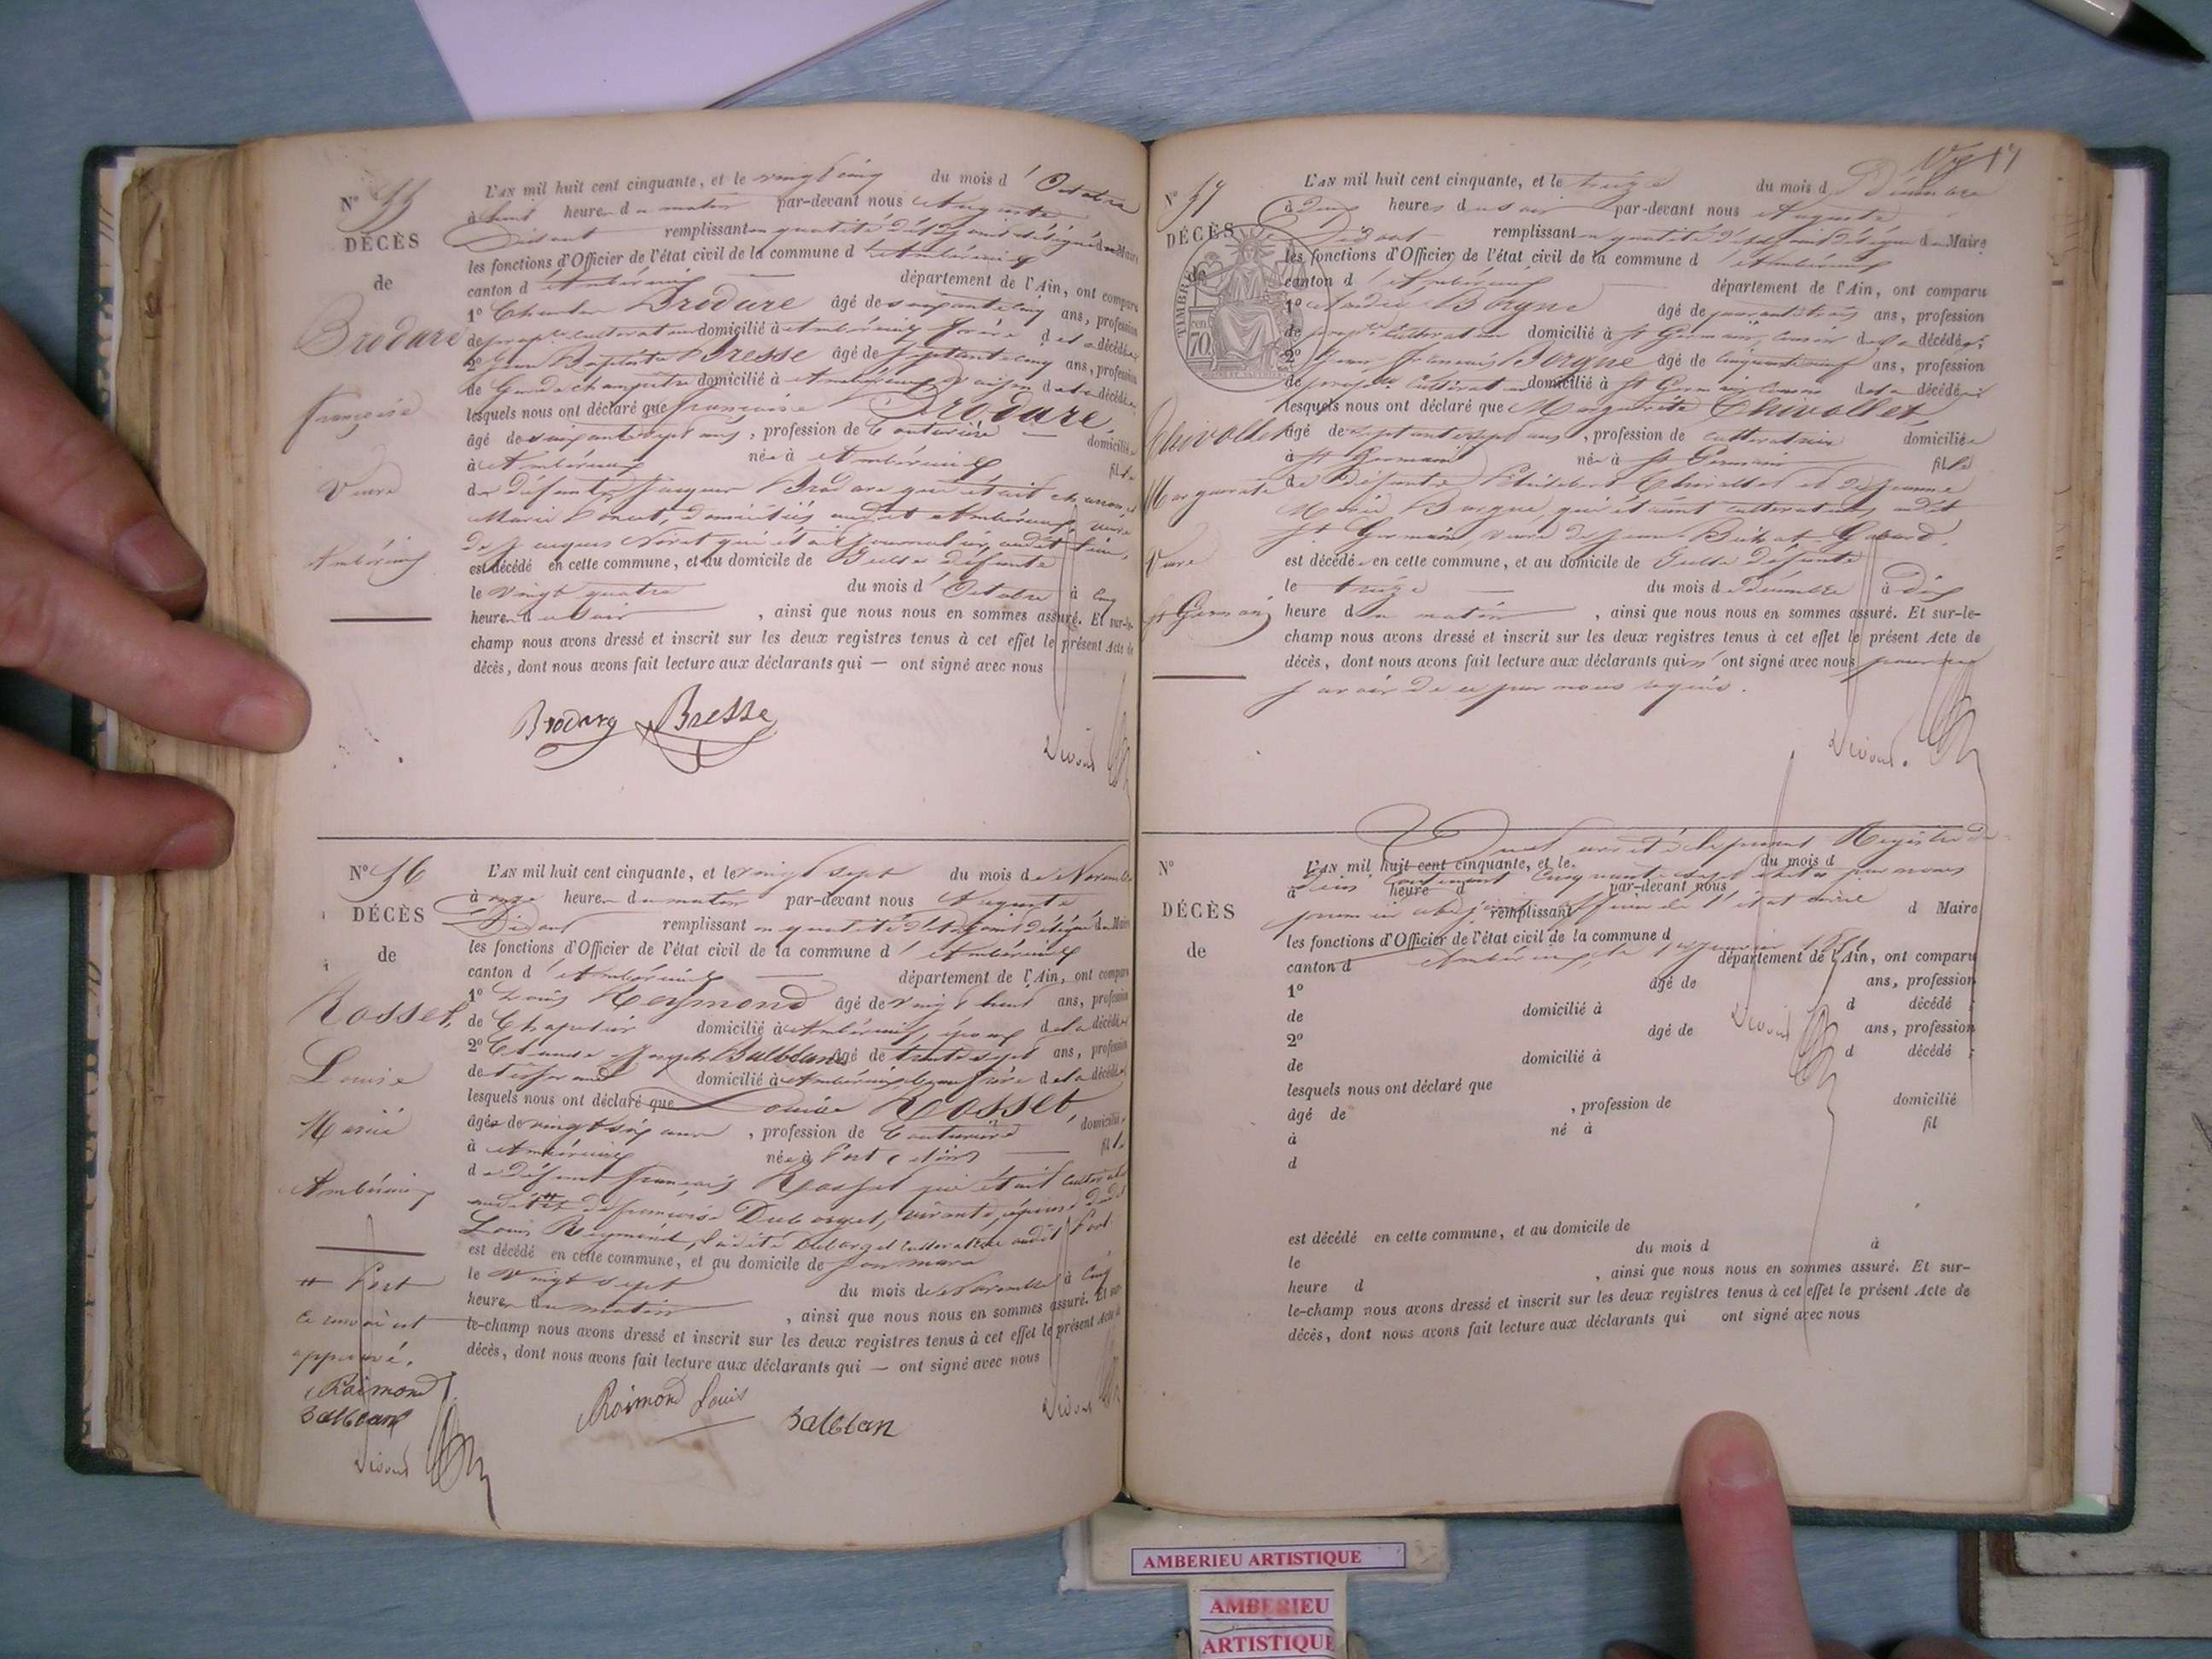 N° 55
DÉCÈS
de
Brodare
Françoise
Veuve
Ambérieux
L'AN mil huit cent cinquante, et le vingt cinq du mois d'Octobre
à huit heures du matin par-devant nous Auguste
Divout remplissant en qualité d'adjoint délégué du Maire
les fonctions d'Officier de l'état civil de la commune d'Ambérieux
canton d'Ambérieux département de l'Ain, ont comparu
1° Brodare âgé de soixante cinq ans, profession
de prop.re cultivateur domicilié à Ambérieux frère de la décédée
2° Jean Baptiste Bresse âgé de septante cinq ans, profession
de Garde champêtre domicilié à Ambérieux voisin de la décédée
lesquels nous ont déclaré que françoise Brodare,
âgé de soixante sept ans, profession de Couturière domiciliée
à Ambérieux née à Ambérieux fille
de défunts Jacques Brodare qui était et
Marie domiciliés audit Ambérieux, veuve
de Jacques qui était journalier audit lieu,
est décédé en cette commune, et au domicile de Elle défunte
le vingt quatre du mois d'Octobre à cinq
heures du soir, ainsi que nous nous en sommes assuré. Et sur-le-
champ nous avons dressé et inscrit sur les deux registres tenus à cet effet le présent Acte de
décès, dont nous avons fait lecture aux déclarants qui — ont signé avec nous
Brodare Bresse
N° 56
DÉCÈS
de
Rosset,
Louise
Mariée
Ambérieux
# Port
ce renvoi est
approuvé.
Raimond
Balblanc
L'AN mil huit cent cinquante, et le vingt sept du mois de Novembre
à onze heures du matin par-devant nous Auguste
Divout remplissant en qualité d'adjoint délégué du Maire
les fonctions d'Officier de l'état civil de la commune d'Ambérieux
canton d'Ambérieux département de l'Ain, ont comparu
1° Louis Reymond âgé de vingt huit ans, profession
de Chapelier domicilié à Ambérieux, époux de la décédée
2° Claude Joseph Balblanc âgé de trente sept ans, profession
de tisserand domicilié à Ambérieux beau frère de la décédée
lesquels nous ont déclaré que Louise Rosset,
âgée de vingt six ans, profession de Couturière domiciliée
à Ambérieux née à Port fille
de défunt françois Rosset qui était cultivateur
audit # et de françoise Duborget, vivante, épouse dudit
Louis Reymond, ladite Duborget cultivatrice audit Port
est décédé en cette commune, et au domicile de son mari
le vingt sept du mois de Novembre à cinq
heures du matin, ainsi que nous nous en sommes assuré. Et sur-
le-champ nous avons dressé et inscrit sur les deux registres tenus à cet effet le présent Acte de
décès, dont nous avons fait lecture aux déclarants qui — ont signé avec nous
Raimond Louis Balblan
N° 57
DÉCÈS
de
TIMBRE
70
Chivollet
Marguerite
Veuve
St Germain
L'AN mil huit cent cinquante, et le treize du mois de Décembre
à deux heures du soir par-devant nous Auguste
Divout remplissant en qualité d'adjoint délégué du Maire
les fonctions d'Officier de l'état civil de la commune d'Ambérieux
canton d'Ambérieux département de l'Ain, ont comparu
1° Borgne âgé de quarante trois ans, profession
de prop.re cultivateur domicilié à St Germain, cousin de la décédée;
2° Jean Borgne âgé de cinquante neuf ans, profession
de prop.re cultivateur domicilié à St Germain cousin de la décédée;
lesquels nous ont déclaré que Marguerite Chivollet,
âgé de septante sept ans, profession de cultivatrice domiciliée
à St Germain née à St Germain fille
de défunts Philibert Chivollet et de Jeanne
Marie Borgne, qui étaient cultivateurs audit
St Germain, veuve de Jean
est décédée en cette commune, et au domicile de Elle défunte
le treize du mois de décembre à dix
heure du matin, ainsi que nous nous en sommes assuré. Et sur-le-
champ nous avons dressé et inscrit sur les deux registres tenus à cet effet le présent Acte de
décès, dont nous avons fait lecture aux déclarants qui n'ont signé avec nous pour ne
savoir de ce par nous requis.
N°
DÉCÈS
de
arrêté le présent Registre de
L'AN mil huit cent cinquante, et le du mois d
Décès contenant Cinquante sept actes par nous
à heure d par-devant nous
premier adjoint officier de l'état civil
remplissant d Maire
les fonctions d'Officier de l'état civil de la commune d
Ambérieux, le 1er Janvier 1851
canton d département de l'Ain, ont comparu
1° âgé de ans, profession
de domicilié à d décédé ;
2° âgé de ans, profession
de domicilié à d décédé ;
lesquels nous ont déclaré que
âgé de , profession de domicilié
à né à fil
d
est décédé en cette commune, et au domicile de
le du mois d à
heure d , ainsi que nous nous en sommes assuré. Et sur-
le-champ nous avons dressé et inscrit sur les deux registres tenus à cet effet le présent Acte de
décès, dont nous avons fait lecture aux déclarants qui ont signé avec nous
AMBERIEU ARTISTIQUE
AMBERIEU
ARTISTIQUE